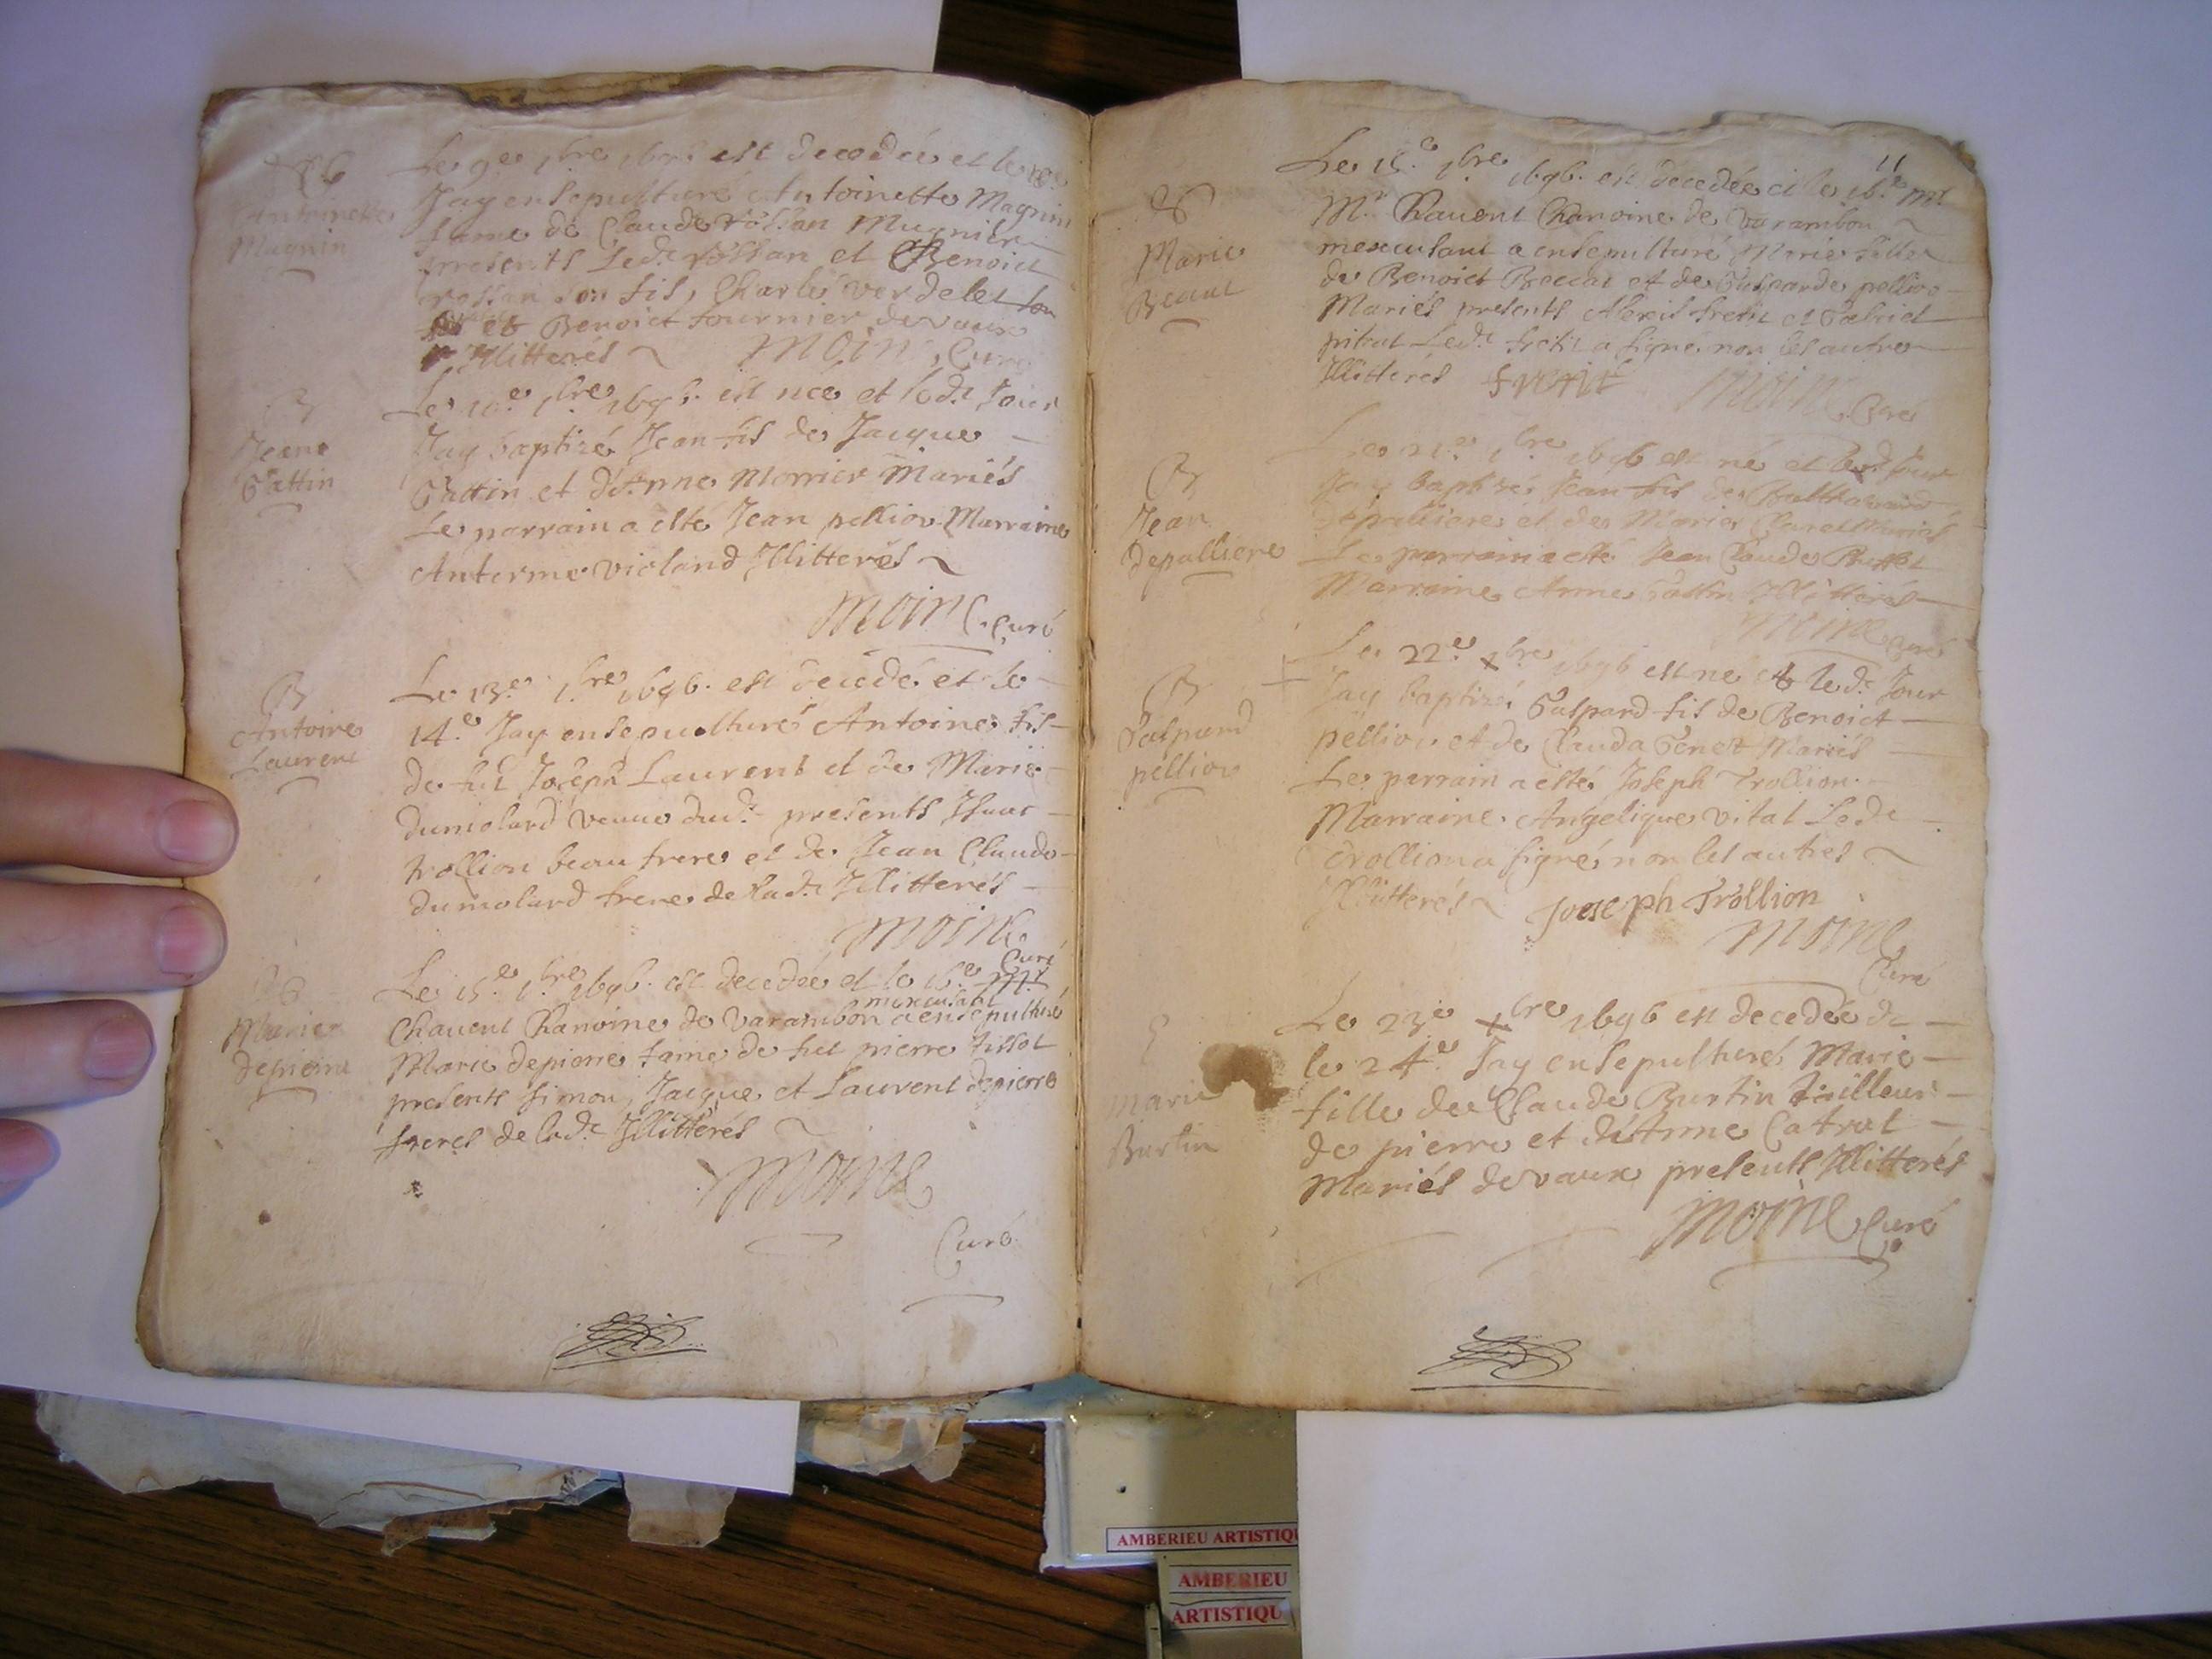 Antoinette
Magnin
Le 9e xbre 1696 est decedée et le 10e
Jay ensepulturé Antoinette Magnin
fame de Claude rossan Mugnier
presents Led.t rossan et Benoict
rossan son fils, Charles verdelet son
et Benoict fournier de vaux
Illitterés Moine Curé
B
Jeane
Gattin
Le 10.e xbre 1696. est nee et led.t Jour
Jay baptizé Jean fils de Jacque
Gattin et d'Anne Morrier Mariés
Le parrain a esté Jean pelliou Marraine
Anterme violand Illitterés
Moine Curé
Antoine
Laurent
Le 13.e xbre 1696. est decedé et le
14.e Jay ensepulturé Antoine fils
de fut Joseph Laurent et de Marie
dumolard veuve dud.t presents Isaac
trollion beau frere et de Jean Claude
dumolard frere de lad.t Illitterés
Moine
Curé
Marie
depierre
Le 15.e xbre 1696. est decedée et le 16.e Mr
mexcusant
Chavent Chanoine de Varambon a ensepulturé
Marie depierre fame de fut pierre tissot
presents simon, Jacque et Laurent depierre
freres de lad.t Illitterés
Moine
Curé
11
Marie
Le 15.e xbre 1696. est decedée et le 16.e
Mr Chavent Chanoine de Varambon
mexcusant a ensepulturé Marie fille
de Benoict Beccat et de Gasparde pelliou
Mariés presents Alexis fretit et Gabriel
pitrat Led.t a signé non les autres
Illitterés Moine Curé
B
Jean
depalliere
Le 21.e xbre 1696 est né et led.t Jour
Jay baptizé Jean fils de Balthazard
depalliere et de Marie Mariés
Le parrain a esté Jean Claude
Marraine Anne Gattin Illitterés
Moine Curé
B
Gaspard
pelliou
Le 22.e xbre 1696 est né et led.t Jour
Jay baptizé Gaspard fils de Benoict
pelliou et de Clauda Genet Mariés
Le parrain a esté Joseph Trollion
Marraine Angelique vital Led.t
Trollion a signé, non les autres
Illitterés Joseph Trollion
Moine
Curé
E
Marie
Burtin
Le 23.e xbre 1696 est decedée
le 24.e Jay ensepulturé Marie
fille de Claude Burtin tailleur
de pierre et d'Anne Catrat
Mariés de vaux presents Illitterés
Moine Curé
AMBERIEU ARTISTIQU
AMBERIEU
ARTISTIQU